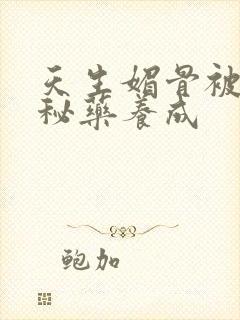 天生媚骨被
秘药养成
鲍加